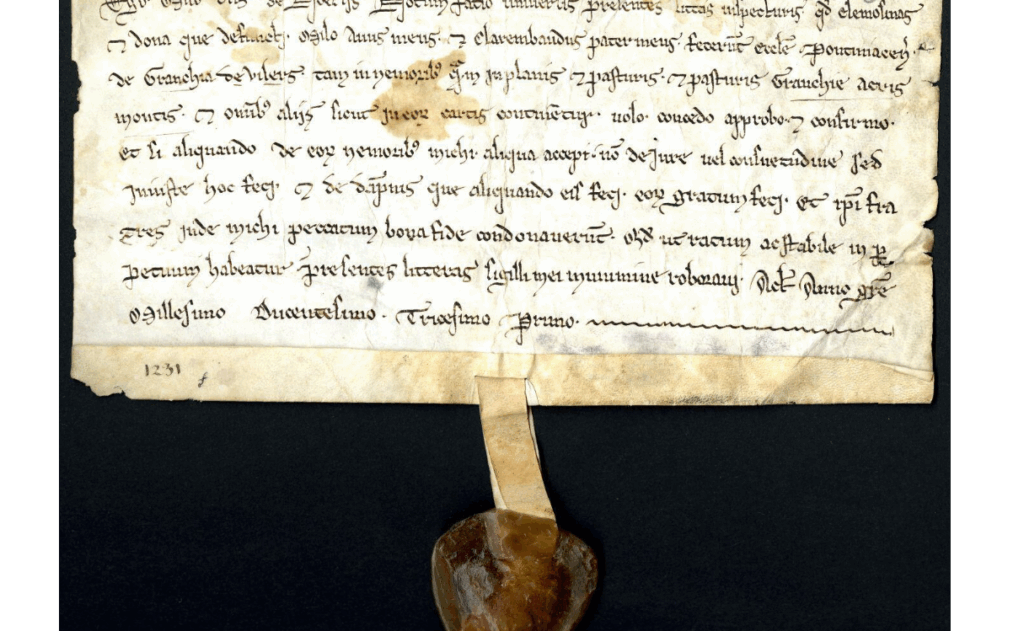 Ego Milo dns de Noeriis Notum facio universis presentes littas inspecturis qd elemosinas
⁊ dona que defuncti. Milo Avus meus. ⁊ Clarembaudus pater meus. fecerut eccle. Pontiniaceñ.
de Granchia de vilers. tam in nemorib' qm in planis ⁊ pasturis. ⁊ pasturis Granchie acris
montis. ⁊ omib' aliis sicut in eor cartis continetur. volo. concedo approbo. ⁊ confirmo.
Et si aliquando de eor nemorib' michi aliqua accepi. no de Jure vel consuetudine sed
Iniuste hoc feci. ⁊ de dapnis que aliquando eis feci. eor gratum feci. Et ipi fra
tres inde michi peccatum bona fide condonaverut. Qd ut ratum ac stabile in per
petuum habeatur. presentes litteras sigilli mei munimine roboravi. Act Anno gre
Millesimo Ducentesimo. Tricesimo Primo.
1231